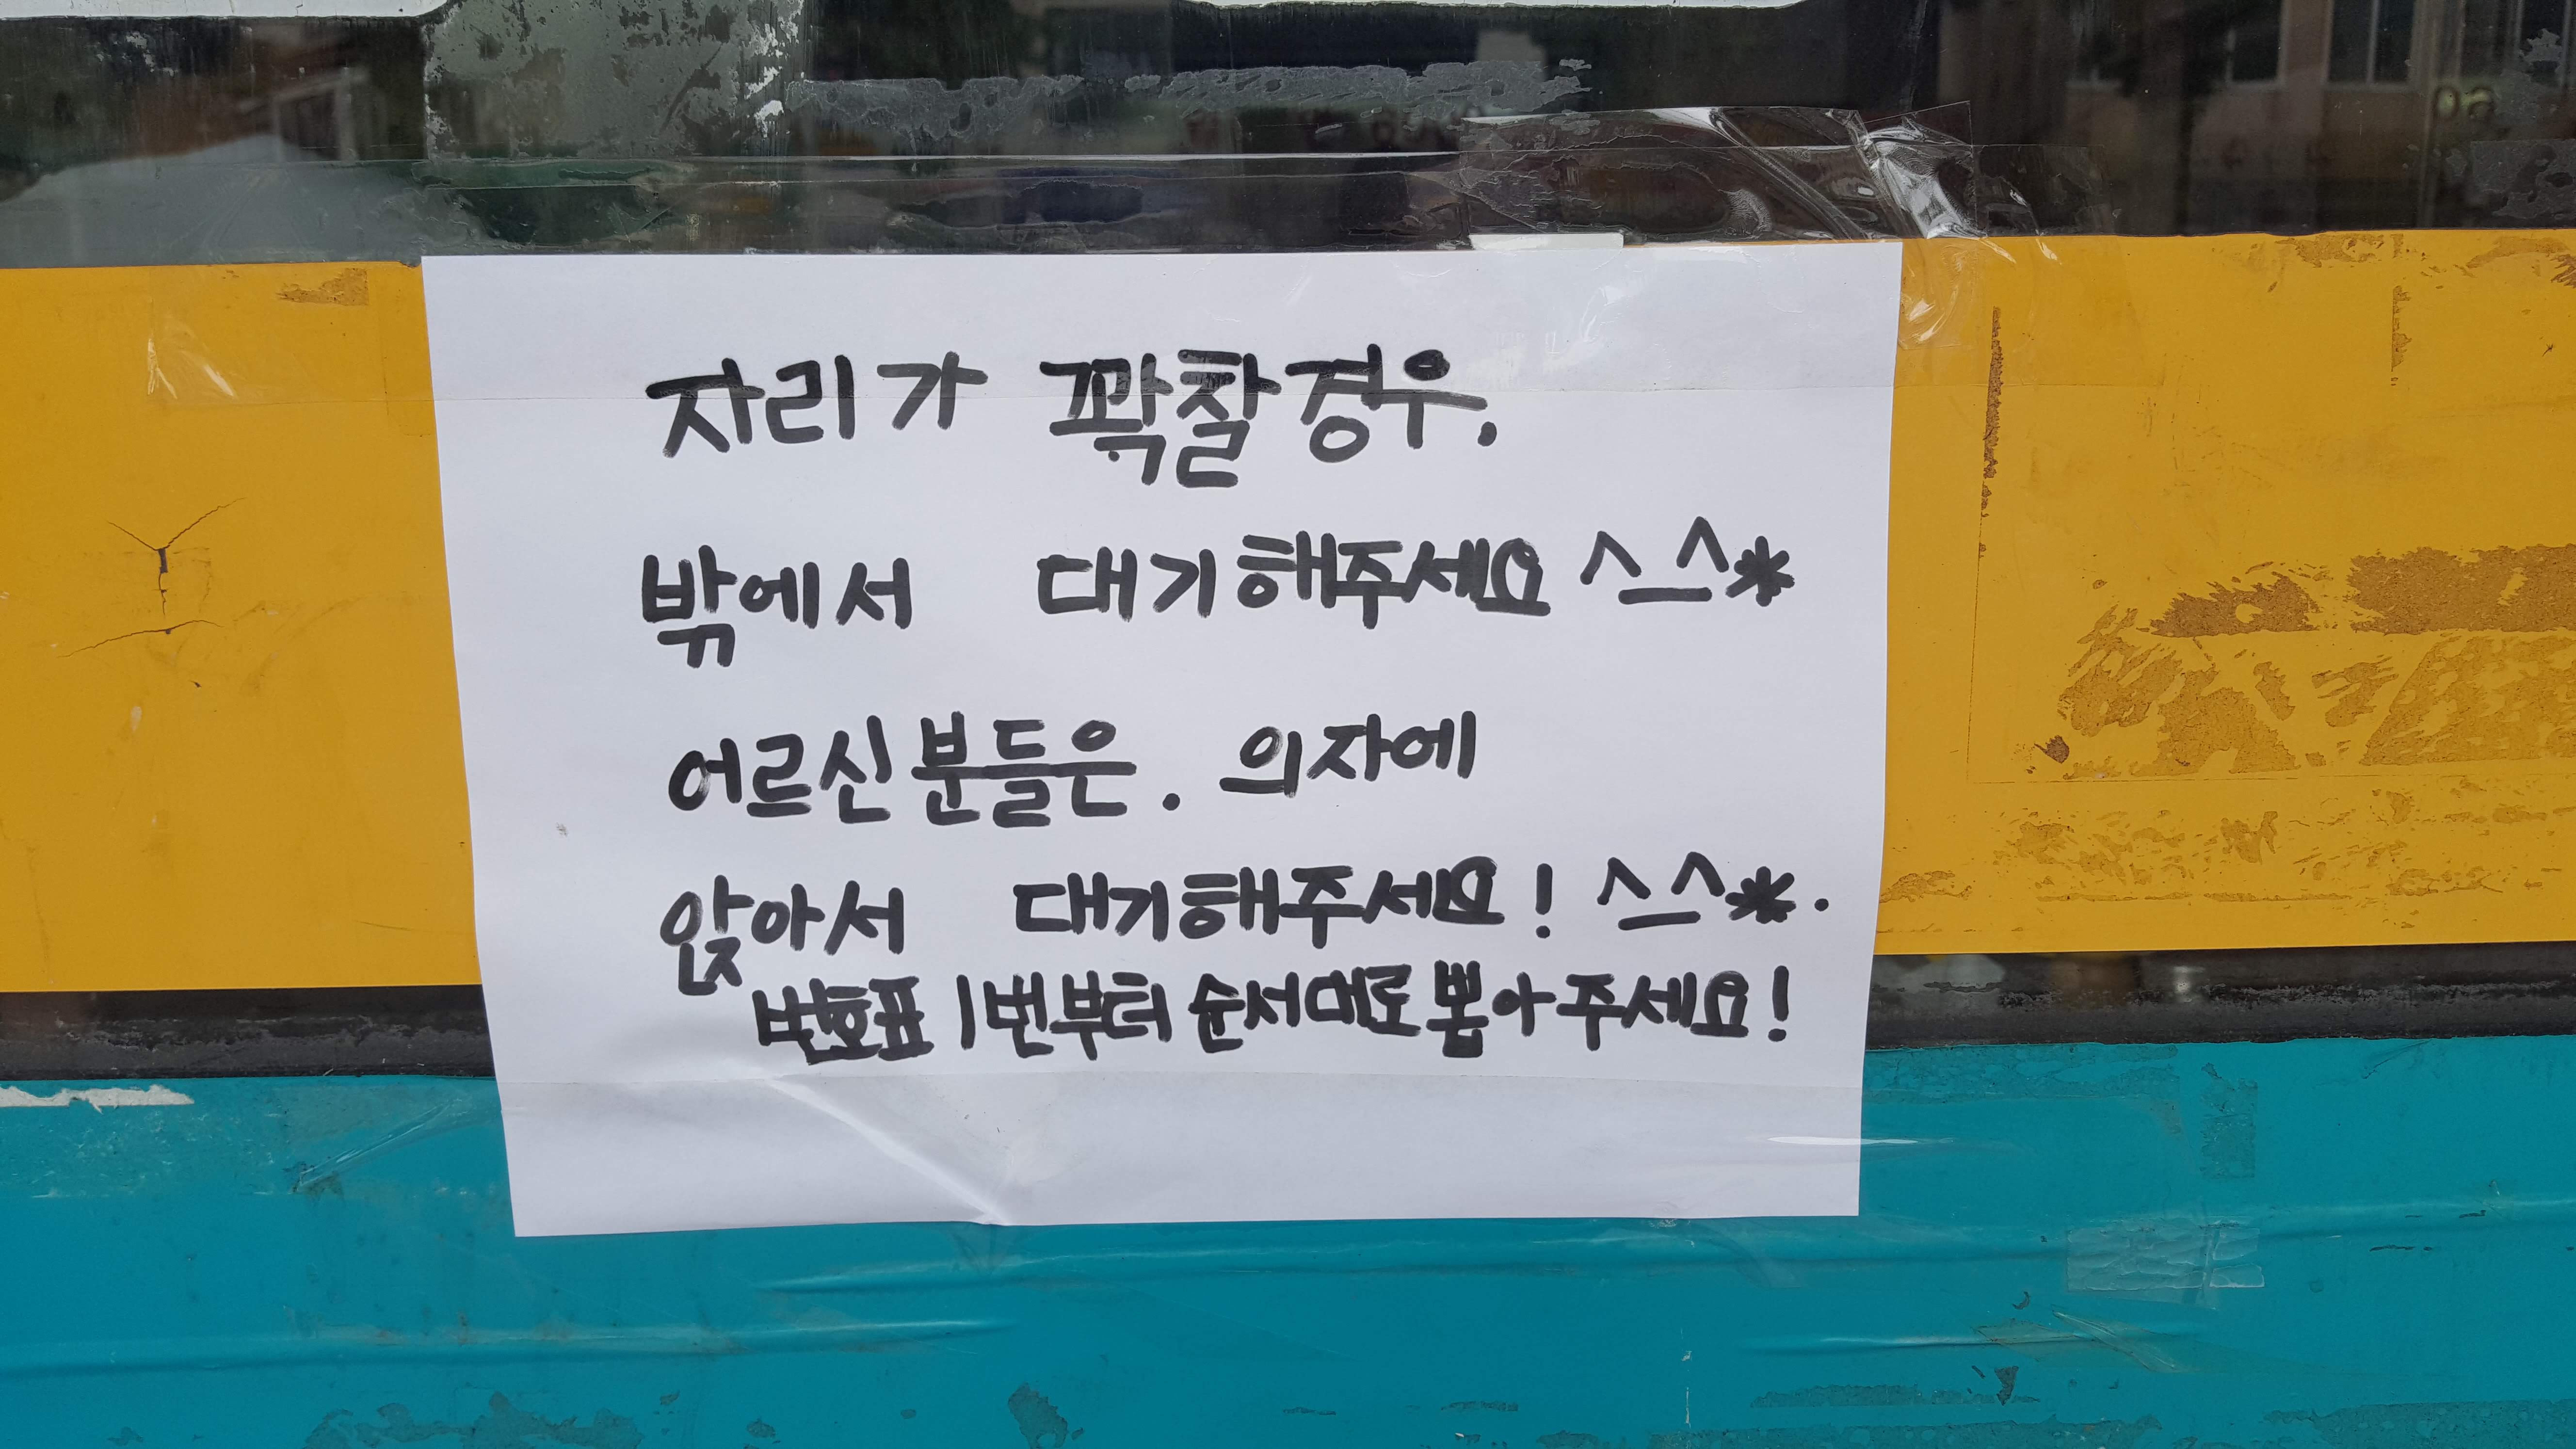 자리가 꽉찰경우.
밖에서 대기해주세요 ^_^*
어르신분들은. 의자에
앉아서 대기해주세요! ^_^*.
번호표 1번부터 순서대로 뽑아주세요!